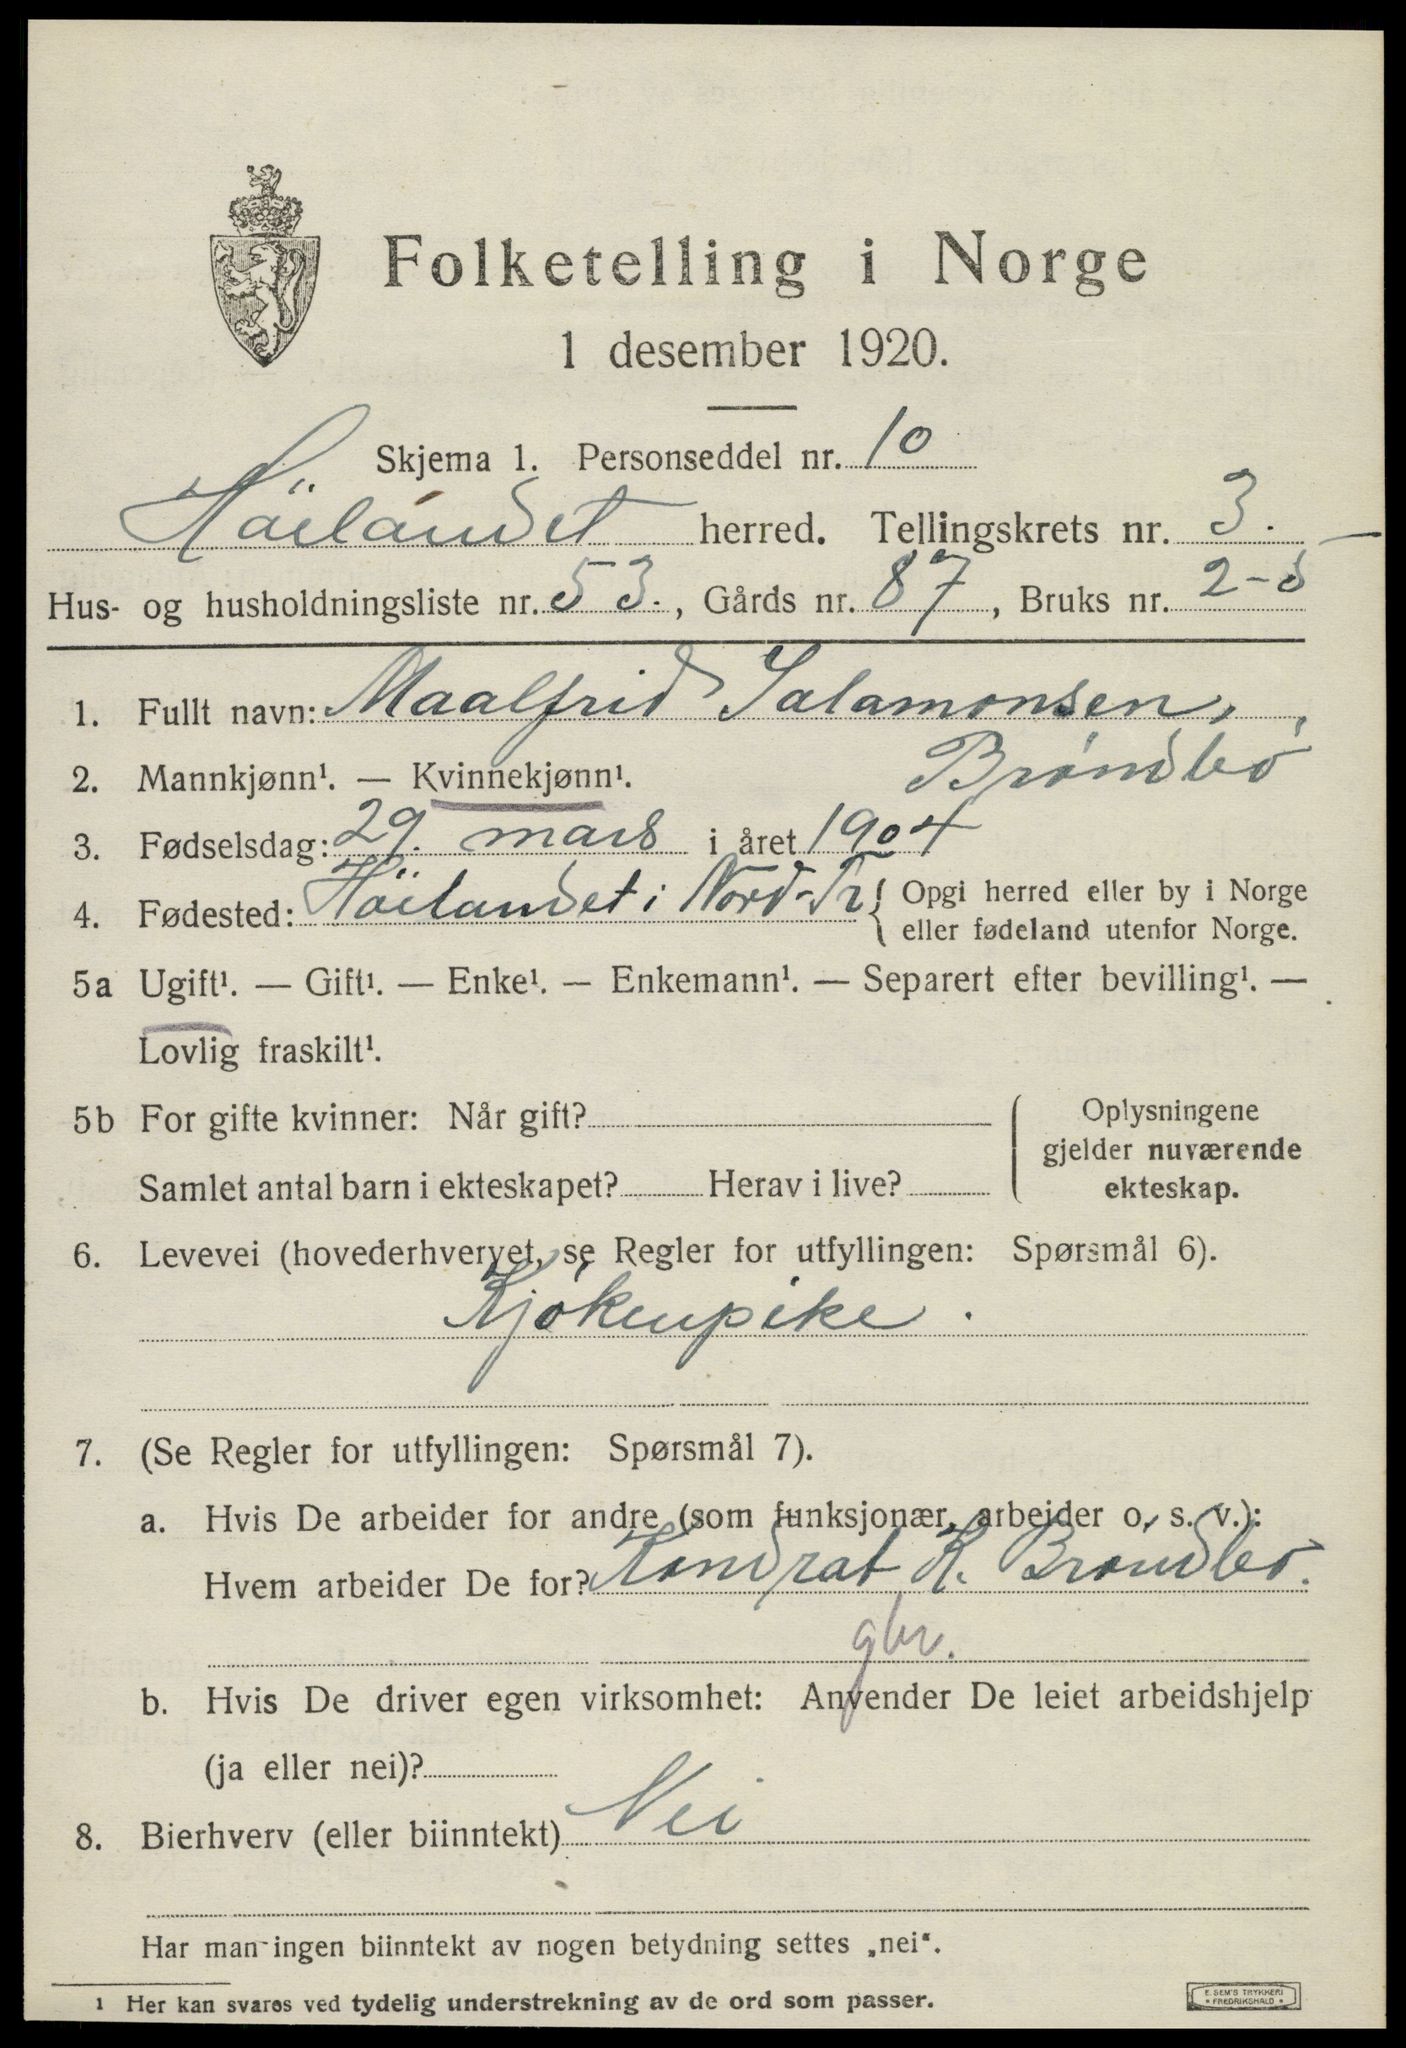 Folketelling i Norge
1 desember 1920.
Skjema 1. Personseddel nr. 10
Höilandet herred. Tellingskrets nr. 3.
Hus- og husholdningsliste nr. 53., Gårds nr. 87, Bruks nr. 2-
1. Fullt navn: Maalfrid Salamonsen,
Bröndbö
2. Mannkjønn¹. — Kvinnekjønn¹.
3. Fødselsdag: 29. mars i året 1904
4. Fødested: Höilandet i Nord-Tr { Opgi herred eller by i Norge
eller fødeland utenfor Norge.
5a Ugift¹. — Gift¹. — Enke¹. — Enkemann¹. — Separert efter bevilling¹. —
Lovlig fraskilt¹.
5b For gifte kvinner: Når gift?
Samlet antal barn i ekteskapet? Herav i live?
Oplysningene
gjelder nuværende
ekteskap.
6. Levevei (hovederhvervet, se Regler for utfyllingen: Spørsmål 6).
Kjökenpike.
7. (Se Regler for utfyllingen: Spørsmål 7).
a. Hvis De arbeider for andre (som funksjonær, arbeider o. s. v.):
Hvem arbeider De for? Kondrat K. Bröndbö.
gbr.
b. Hvis De driver egen virksomhet: Anvender De leiet arbeidshjelp
(ja eller nei)?
8. Bierhverv (eller biinntekt) Nei
Har man ingen biinntekt av nogen betydning settes „nei“.
1 Her kan svares ved tydelig understrekning av de ord som passer.
E. SEM'S TRYKKERI
• FREDRIKSHALD •